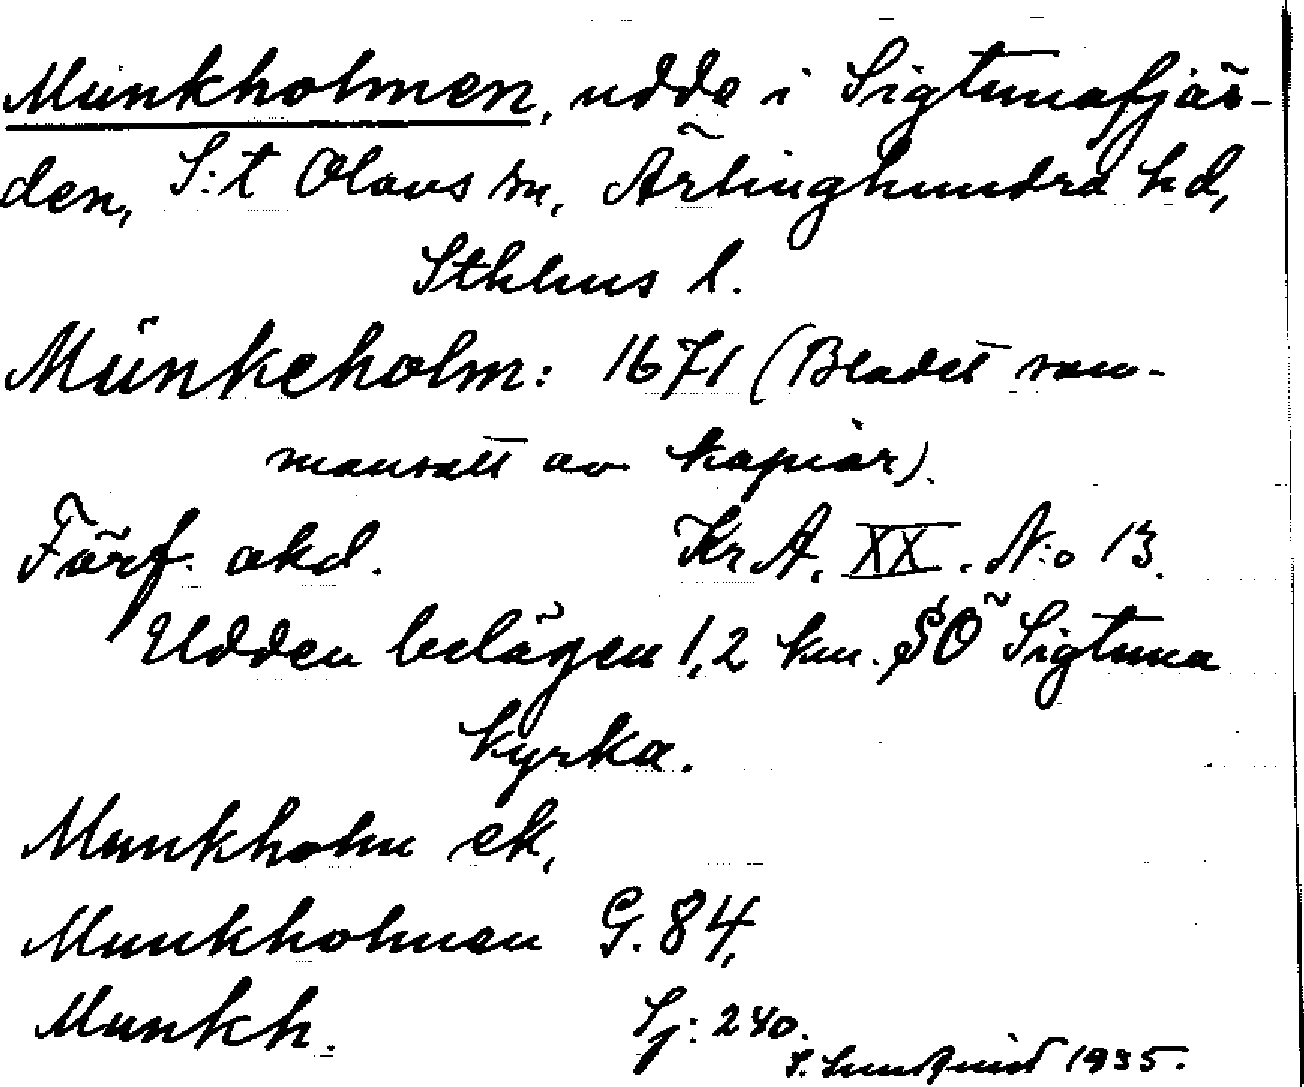 Munkholmen, udde i Sigtunafjär-
den, S:t Olavs sn, Ärlinghundra hd,
Sthlms l.
Munkeholm: 1671 (Bladet sam-
mansatt av kopior).
Förf. okd. Kr A. XX. N:o 13.
Udden belägen 1,2 km. SÖ Sigtuna
kyrka.
Munkholm ek,
Munkholmen G. 84,
Munkh. Sj: 240.
S. Lundquist 1935.